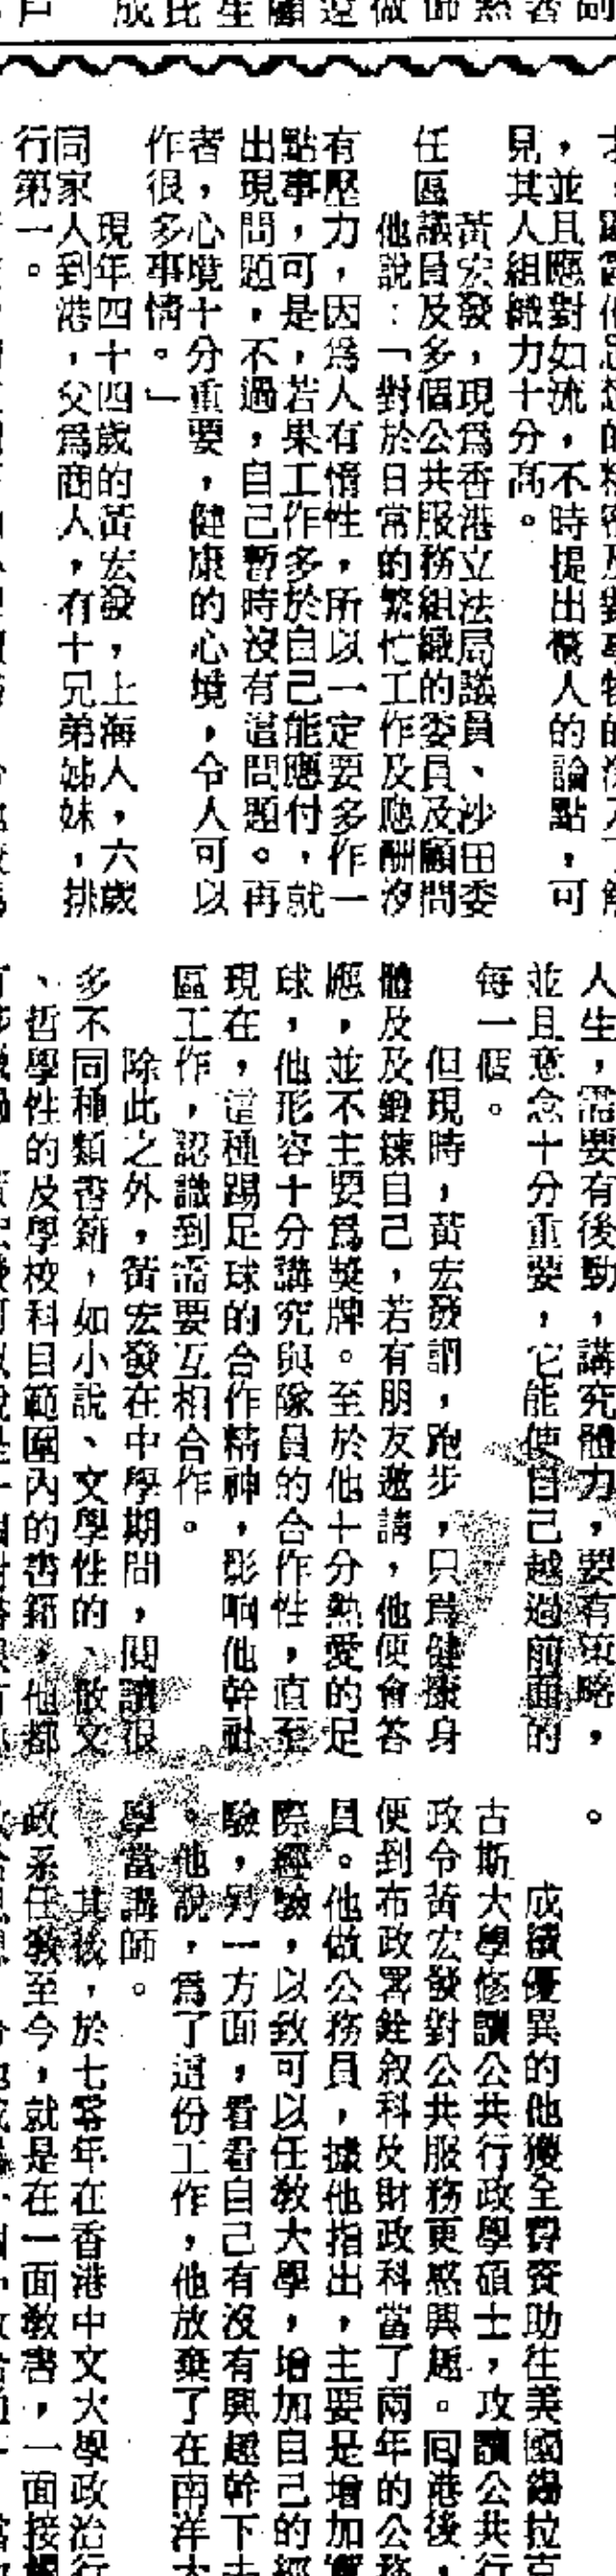 ，並且應對如流，不時提出懾人的論點，可
見其人組織力十分高。
黃宏發，現爲香港立法局議員、沙田委
任區議員及多個公共服務組織的委員及顧問
他說：「對於日常的繁忙工作及應酬沒
有壓力，因爲人有惰性，所以一定要多作一
點事，可是，若果工作多於自己能應付，就
出現問題，不過，自己暫時沒有這問題。再
者，心境十分重要，健康的心境，令人可以
作很多事情。」
現年四十四歲的黃宏發，上海人，六歲
同家人到港，父爲商人，有十兄弟姊妹，排
行第一。
人生，需要有後勁，講究體力，要有策略，
並且意念十分重要，它能使自己越過前面的
每一個。
但現時，黃宏發謂，跑步，只爲健康身
體及及鍛鍊自己，若有朋友邀請，他便會答
應，並不主要爲獎牌。至於他十分熱愛的足
球，他形容十分講究與隊員的合作性，直至
現在，這種踢足球的合作精神，影响他幹社
區工作，認識到需要互相合作。
除此之外，黃宏發在中學期間，閱讀很
多不同種類書籍，如小說、文學性的、散文
、哲學性的及學校科目範圍內的書籍，他都
。
成績優異的他獲全費資助往美國錫拉
古斯大學修讀公共行政學碩士，攻讀公共行
政令黃宏發對公共服務更感興趣。回港後，
便到布政署銓敘科及財政科當了兩年的公務
員。他做公務員，據他指出，主要是增加實
際經驗，以致可以任教大學，增加自己的經
驗，另一方面，看看自己有沒有興趣幹下去
。他說，爲了這份工作，他放棄了在南洋大
學當講師。
其後，於七零年在香港中文大學政治行
政系任教至今，就是在一面教書，一面接觸